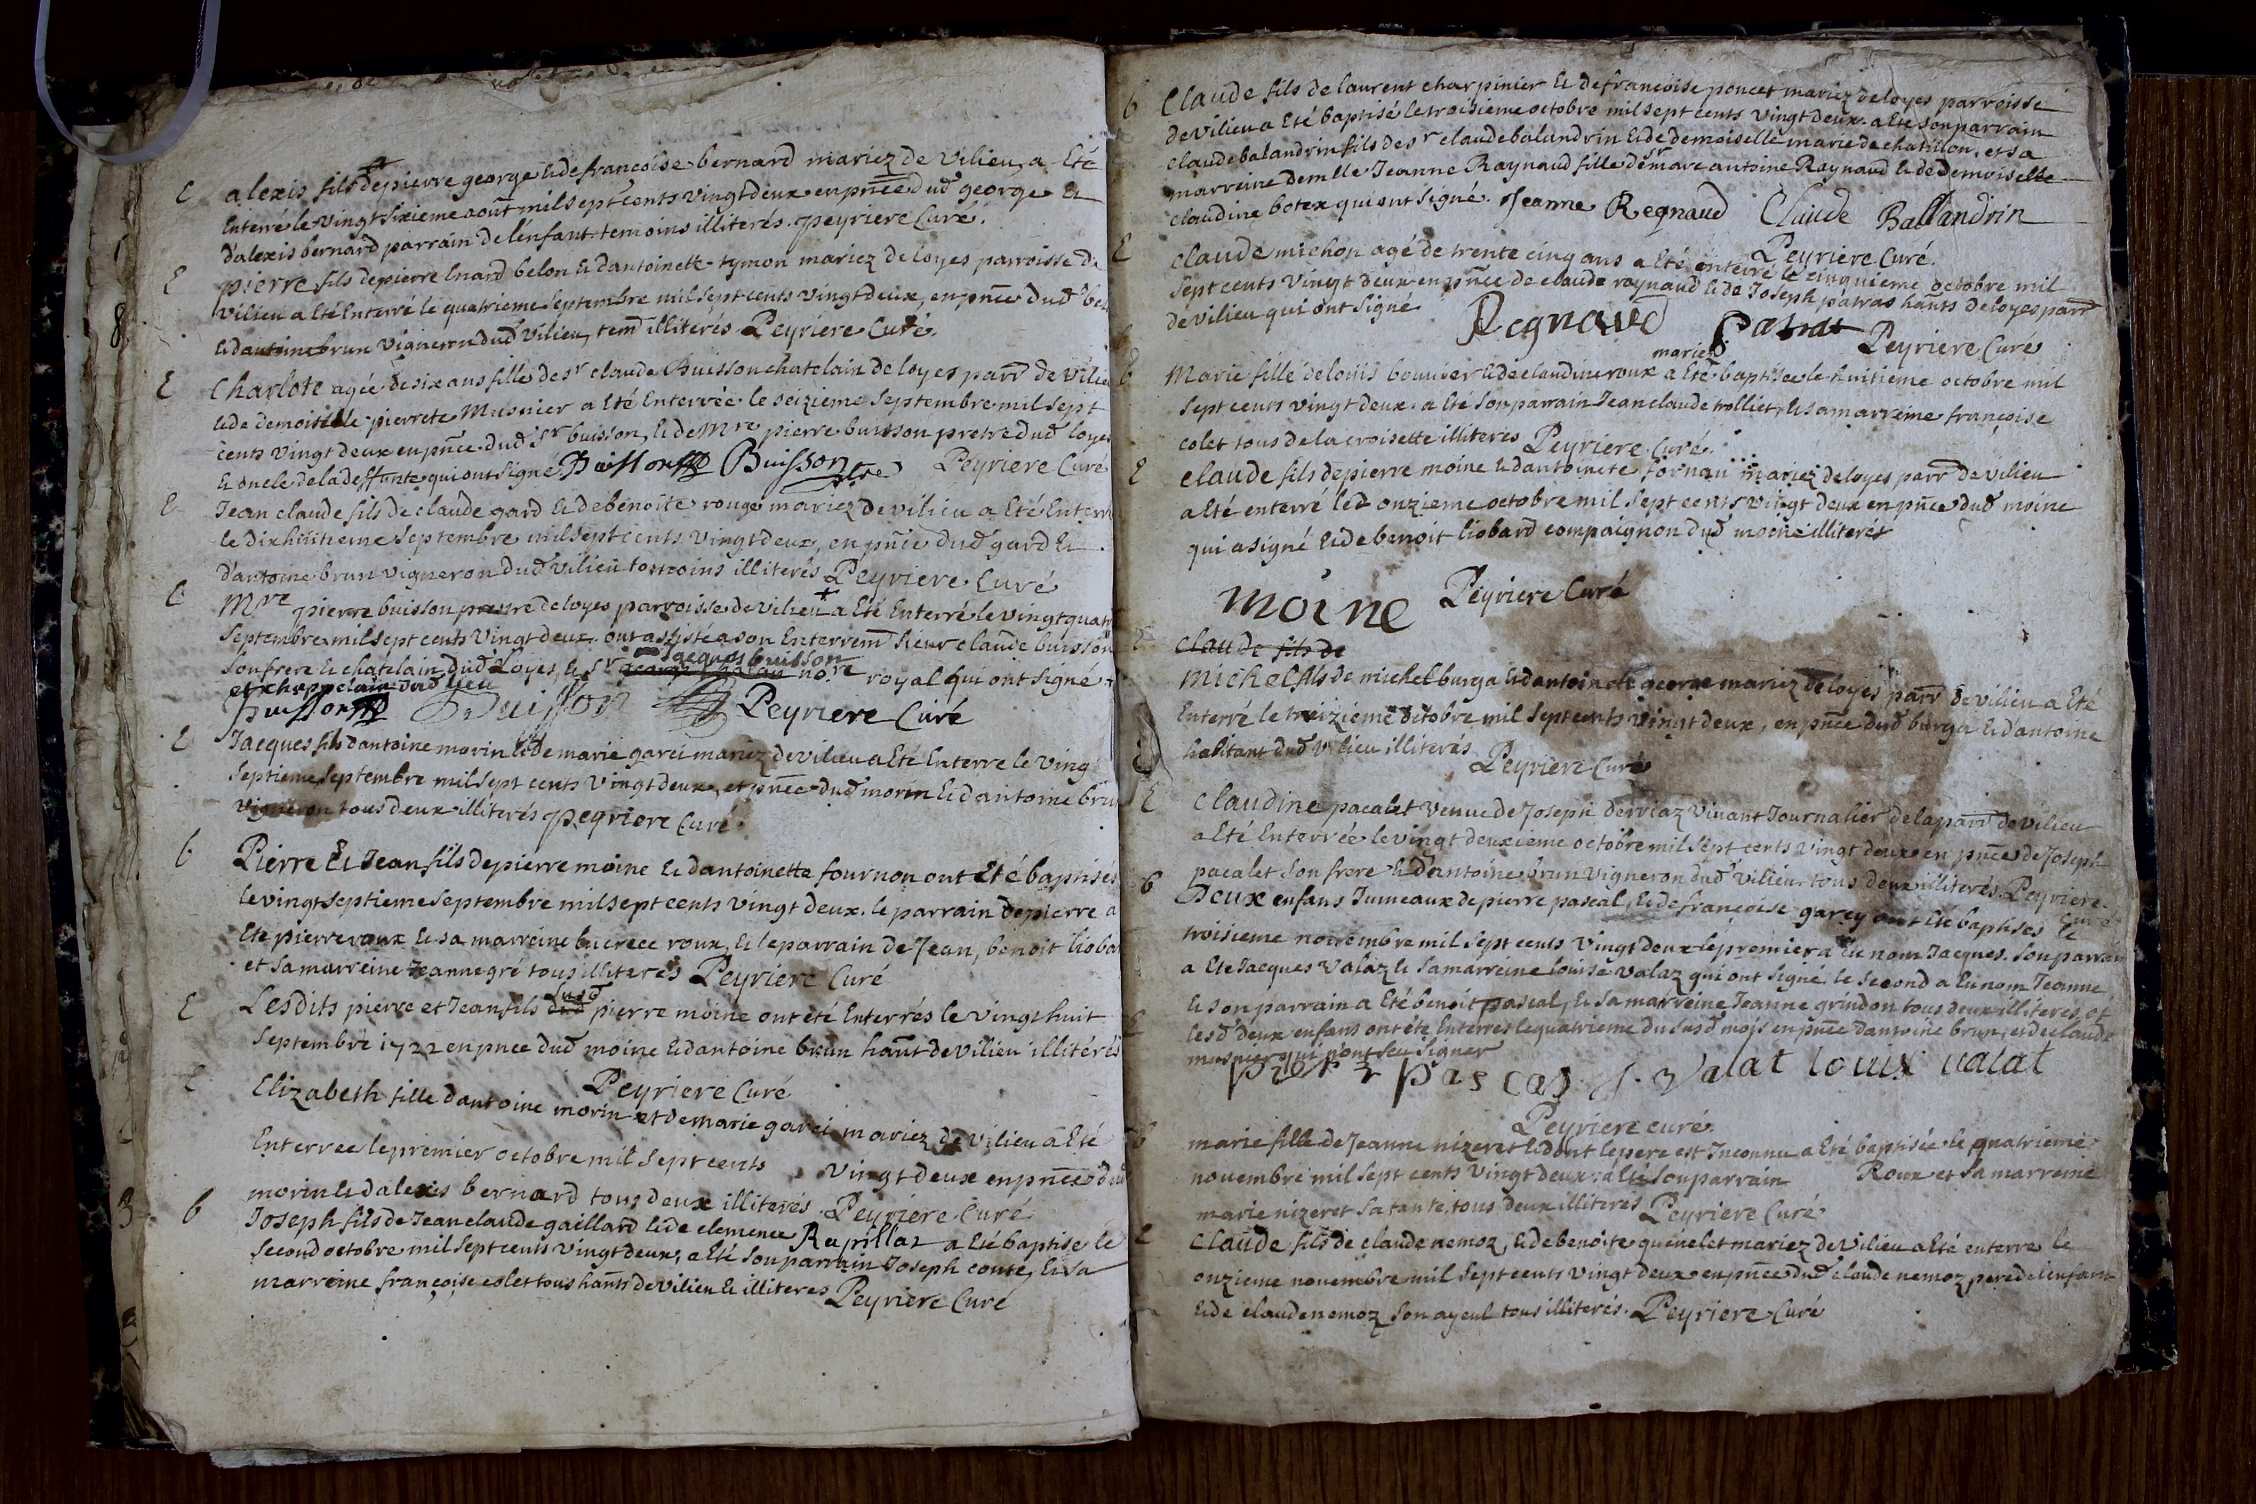 E alexis fils de pierre george & de francoise bernard mariez de vilieu, a Eté
Enterré le vingt sixieme août mil sept cents vingt deux en pñce dud george &
d'alexis bernard parrain de l'enfant temoins illiteres. peyriere Curé.
E pierre fils de pierre Enard belon & d'antoinette tymon mariez de loyes parroisse de
vilieu a Eté Enterré le quatrieme septembre mil sept cents vingt deux, en pñce dud
& d'antoine brun vigneron dud vilieu, tem illiterés Peyriere Curé.
E Charlote agée de six ans fille de sr claude Buisson chatelain de loyes parr de vilieu
& de demoiselle pierrete Musnier a Eté Enterrée le seizieme septembre mil sept
cents vingt deux en pñce dud sr buisson, & de Mre pierre buisson pretre dud loyes
& oncle de la deffunte qui ont signé Buisson Buisson ptre Peyriere Curé
E Jean claude fils de claude gard & de benoite rouge mariez de vilieu a Eté Enterré
le dixhuitieme septembre mil sept cents vingt deux, en pñce dud gard &
d'antoine brun vigneron dud vilieu temoins illiterés Peyriere Curé
E Mre pierre buisson pretre de loyes parroisse de vilieu + a Eté Enterré le vingt quatr
septembre mil sept cents vingt deux. ont assisté a son Enterrem sieur claude buisson
son frere & chatelain dud Loyes, & sr jacques buisson nore royal qui ont signé
et chappelain dud lieu
Buisson Buisson Peyriere Curé
E Jacques fils d'antoine morin & de marie garci mariez de vilieu a Eté Enterre le ving
septieme septembre mil sept cents vingt deux, et pñce dud morin & d'antoine brun
vigneron tous deux illiterés peyriere Curé.
b Pierre & Jean fils de pierre moine & d'antoinette fournon ont Eté baptisés
le vingt septieme septembre mil sept cents vingt deux. le parrain de pierre a
Eté pierre roux & sa marreine lucrece roux, & le parrain de Jean, benoit liobar
et sa marreine Jeanne gré tous illiterés Peyriere Curé
E Lesdits pierre et Jean fils dud susd pierre moine ont été Enterrés le vingt huit
septembre 1722 en pnce dud moine & d'antoine brun hañt de vilieu illitérés
Peyriere Curé
E Elizabeth fille d'antoine morin et de marie garci mariez de vilieu a Eté
Enterrée le premier octobre mil sept cents vingt deux en pñce dud
morin & d'alexis bernard tous deux illiterés. Peyriére Curé
b Joseph fils de Jean claude gaillard & de clemence Rapillar a Eté baptise le
second octobre mil sept cents vingt deux, a Eté son parrain Joseph conte, & sa
marreine françoise colet tous hañts de vilieu & illiteres Peyriere Curé
b Claude fils de laurent charpinier & de francoise poncet mariez de loyes parroisse
de vilieu a Eté baptisé le troisieme octobre mil sept cents vingt deux. a Eté son parrain
claude balandrin fils de sr claude balandrin & de demoiselle marie de chatillon, et sa
marreine demlle Jeanne Raynaud fille de sr marc antoine Raynaud & de demoiselle
claudine botex qui ont signé. Jeanne Regnaud Claude Ballandrin
Peyriere Curé.
E claude michon agé de trente cinq ans a Eté enterré le cinquieme octobre mil
sept cents vingt deux en pñce de claude raynaud & de Joseph patras hañts de loyes parr
de vilieu qui ont signé Regnaud Patrat Peyriere Curé
b Marie fille de louis bouvier & de claudine roux mariez a Eté baptisée le huitieme octobre mil
sept cents vingt deux. a Eté son parrain Jean claude trolliet, & sa marreine françoise
colet tous de la croisette illiteres Peyriere Curé
E claude fils de pierre moine & d'antoinete fornan mariez de loyes parr de vilieu
a Eté enterré le onzieme octobre mil sept cents vingt deux en pñce dud moine
qui a signé & de benoit liobard compaignon dud moine illiterés
moine Peyriere Curé
claude fils de
Michel fils de michel burga & d'antoinete george mariez de loyes parr de vilieu a Eté
Enterré le treizieme octobre mil sept cents vingt deux, en pñce dud burga & d'antoine
habitant dud vilieu illiterés Peyriere Curé
E Claudine pacalet veuve de Joseph derriaz vivant Journalier de la parr de vilieu
a Eté Enterrée le vingt deuxieme octobre mil sept cents vingt deux en pñce de Joseph
pacalet son frere & d'antoine brun vigneron dud vilieu tous deux illiterés. Peyriere Curé
b Deux enfans Jumeaux de pierre pascal, & de françoise garcy ont Eté baptisés le
troisieme novembre mil sept cents vingt deux le premier a Eu nom Jacques. son parrain
a Eté Jacques valaz & sa marreine louise valaz qui ont signé. le second a Eu nom Jeanne
& son parrain a Eté benoit pascal, & sa marreine Jeanne grindon tous deux illiteres, et
E lesd deux enfans ont été Enterres le quatrieme du susd mois en pñce d'antoine brun, et de claude
musnier qui n'ont seu signer
pier pascal J. valat louix valat
Peyriere curé
b marie fille de Jeanne nizeret & dont le pere est Inconnu a Eté baptisée le quatrieme
novembre mil sept cents vingt deux. a Eté son parrain Roux et sa marreine
marie nizeret sa tante, tous deux illiteres Peyriere Curé.
E Claude fils de claude nemoz, & de benoite quenelet mariez de vilieu a Eté enterre le
onzieme novembre mil sept cents vingt deux en pñce dud claude nemoz pere de l'enfant
& de claude nemoz son ayeul tous illiterés. Peyriere Curé